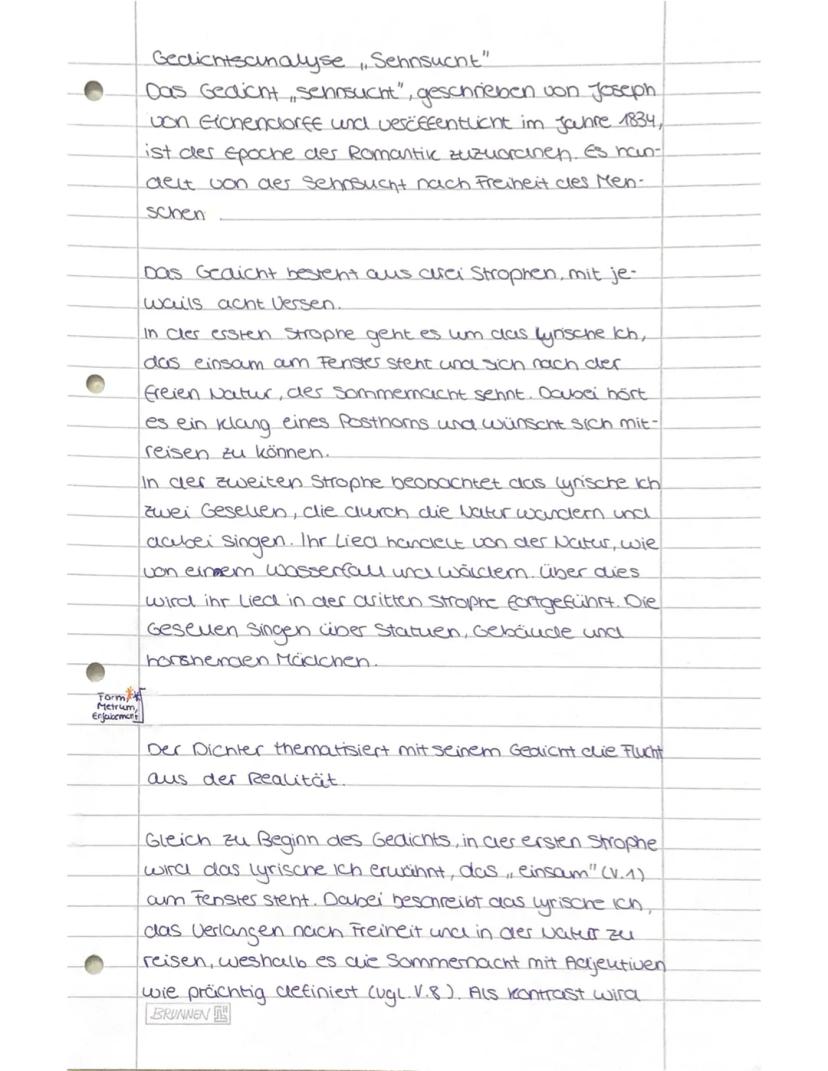 Gedichtsanalyse „Sehnsucht"
Das Gedicht „Sehnsucht", geschrieben von Joseph
von Eichendorff und veröffentlicht im Jahre 1834,
ist der Epoche der Romantik zuzuordnen. Es han-
delt von der Sehnsucht nach Freiheit des Men-
schen
Das Gedicht besteht aus drei Strophen, mit je-
wails acht Versen.
In der ersten Strophe geht es um das lyrische Ich,
das einsam am Fenster steht und sich nach der
freien Natur, der Sommernacht sehnt. Dabei hört
es ein Klang eines Posthorns und wünscht sich mit-
reisen zu können.
In der zweiten Strophe beobachtet das lyrische Ich
zwei Gesellen, die durch die Natur wandern und
dabei singen. Ihr Lied handelt von der Natur, wie
von einem Wasserfall und Wäldern. Über dies
wird ihr Lied in der dritten Strophe fortgeführt. Die
Gesellen singen über Statuen, Gebäude und
horchenden Mädchen.
Form,
Metrum,
Enjabement
Der Dichter thematisiert mit seinem Gedicht die Flucht
aus der Realität.
Gleich zu Beginn des Gedichts, in der ersten Strophe
wird das lyrische Ich erwähnt, das „einsam" (V.1)
am Fenster steht. Dabei beschreibt das lyrische Ich,
das Verlangen nach Freiheit und in der Natur zu
reisen, weshalb es die Sommernacht mit Adjektiven
wie prächtig definiert (vgl. V.8). Als Kontrast wird
BRUNNEN